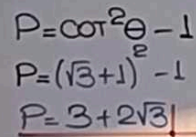 P=cot²θ-1
P=(√3+1)²-1
P=3+2√3